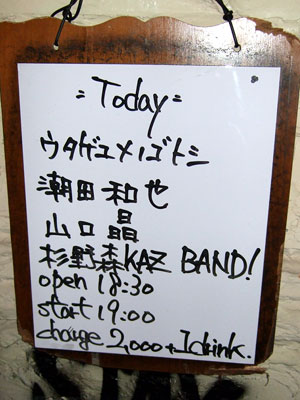 =Today=
ウタゲユメノゴトシ
潮田和也
山口晶
杉野森KAZ BAND!
open 18:30
start 19:00
charge 2,000+1drink.